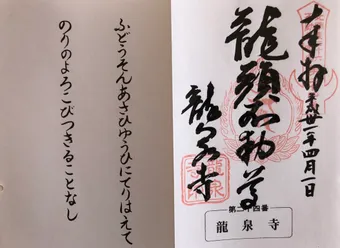 奉拝 平成 一年四月一日
龍頭不動尊
龍泉寺
第二十四番
龍泉寺
ふどうそんあさひゆうひにてりはえて
のりのよろこびつきることなし